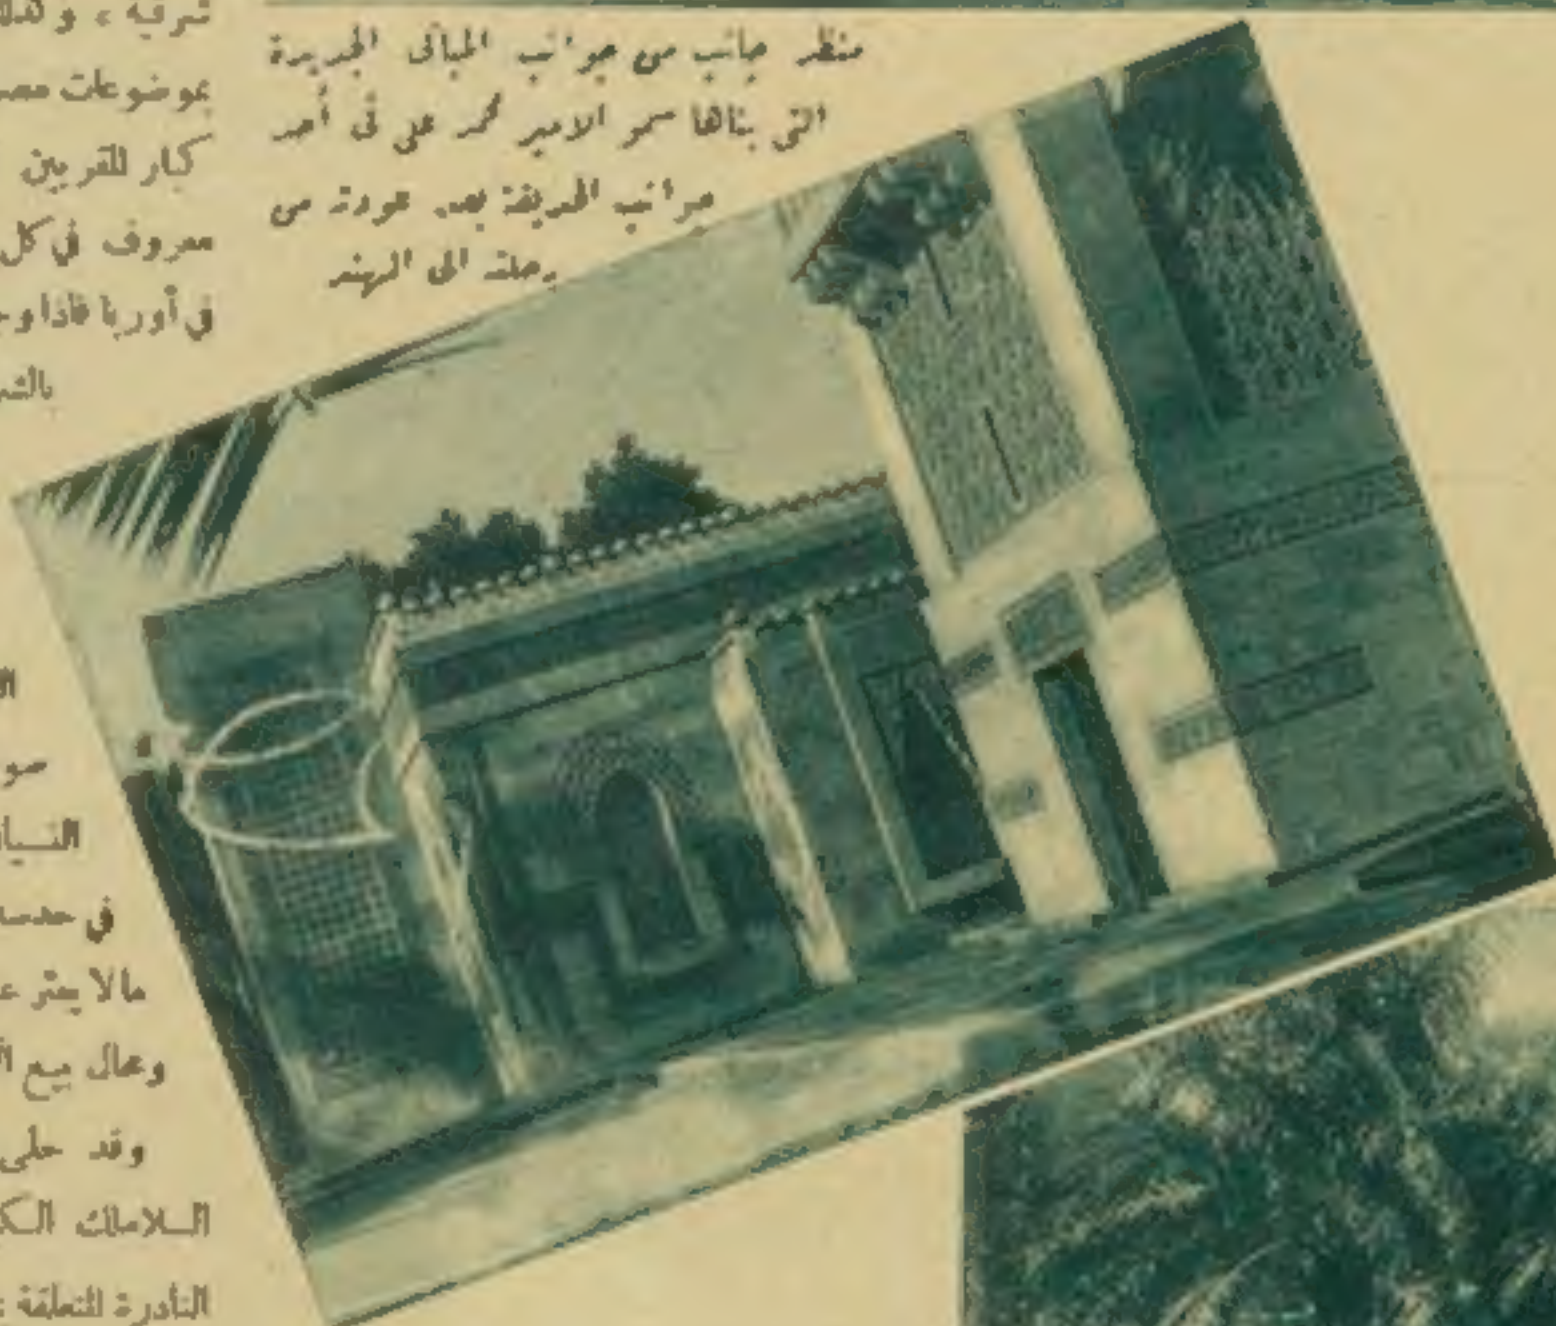 منظر جانب من جوانب المبانى الجديدة
التى بناها سمو الامير محمد على فى أحد
جوانب الحديقة بعد عودته من
رحلته الى الهند
شرقية ، و
بموضوعات
كبار المقربين
معروف في كل
في أوربا فاذا
في
مالا يعثر
ومحال بيع
وقد حلى
السلاملك
النادرة المتعلقة